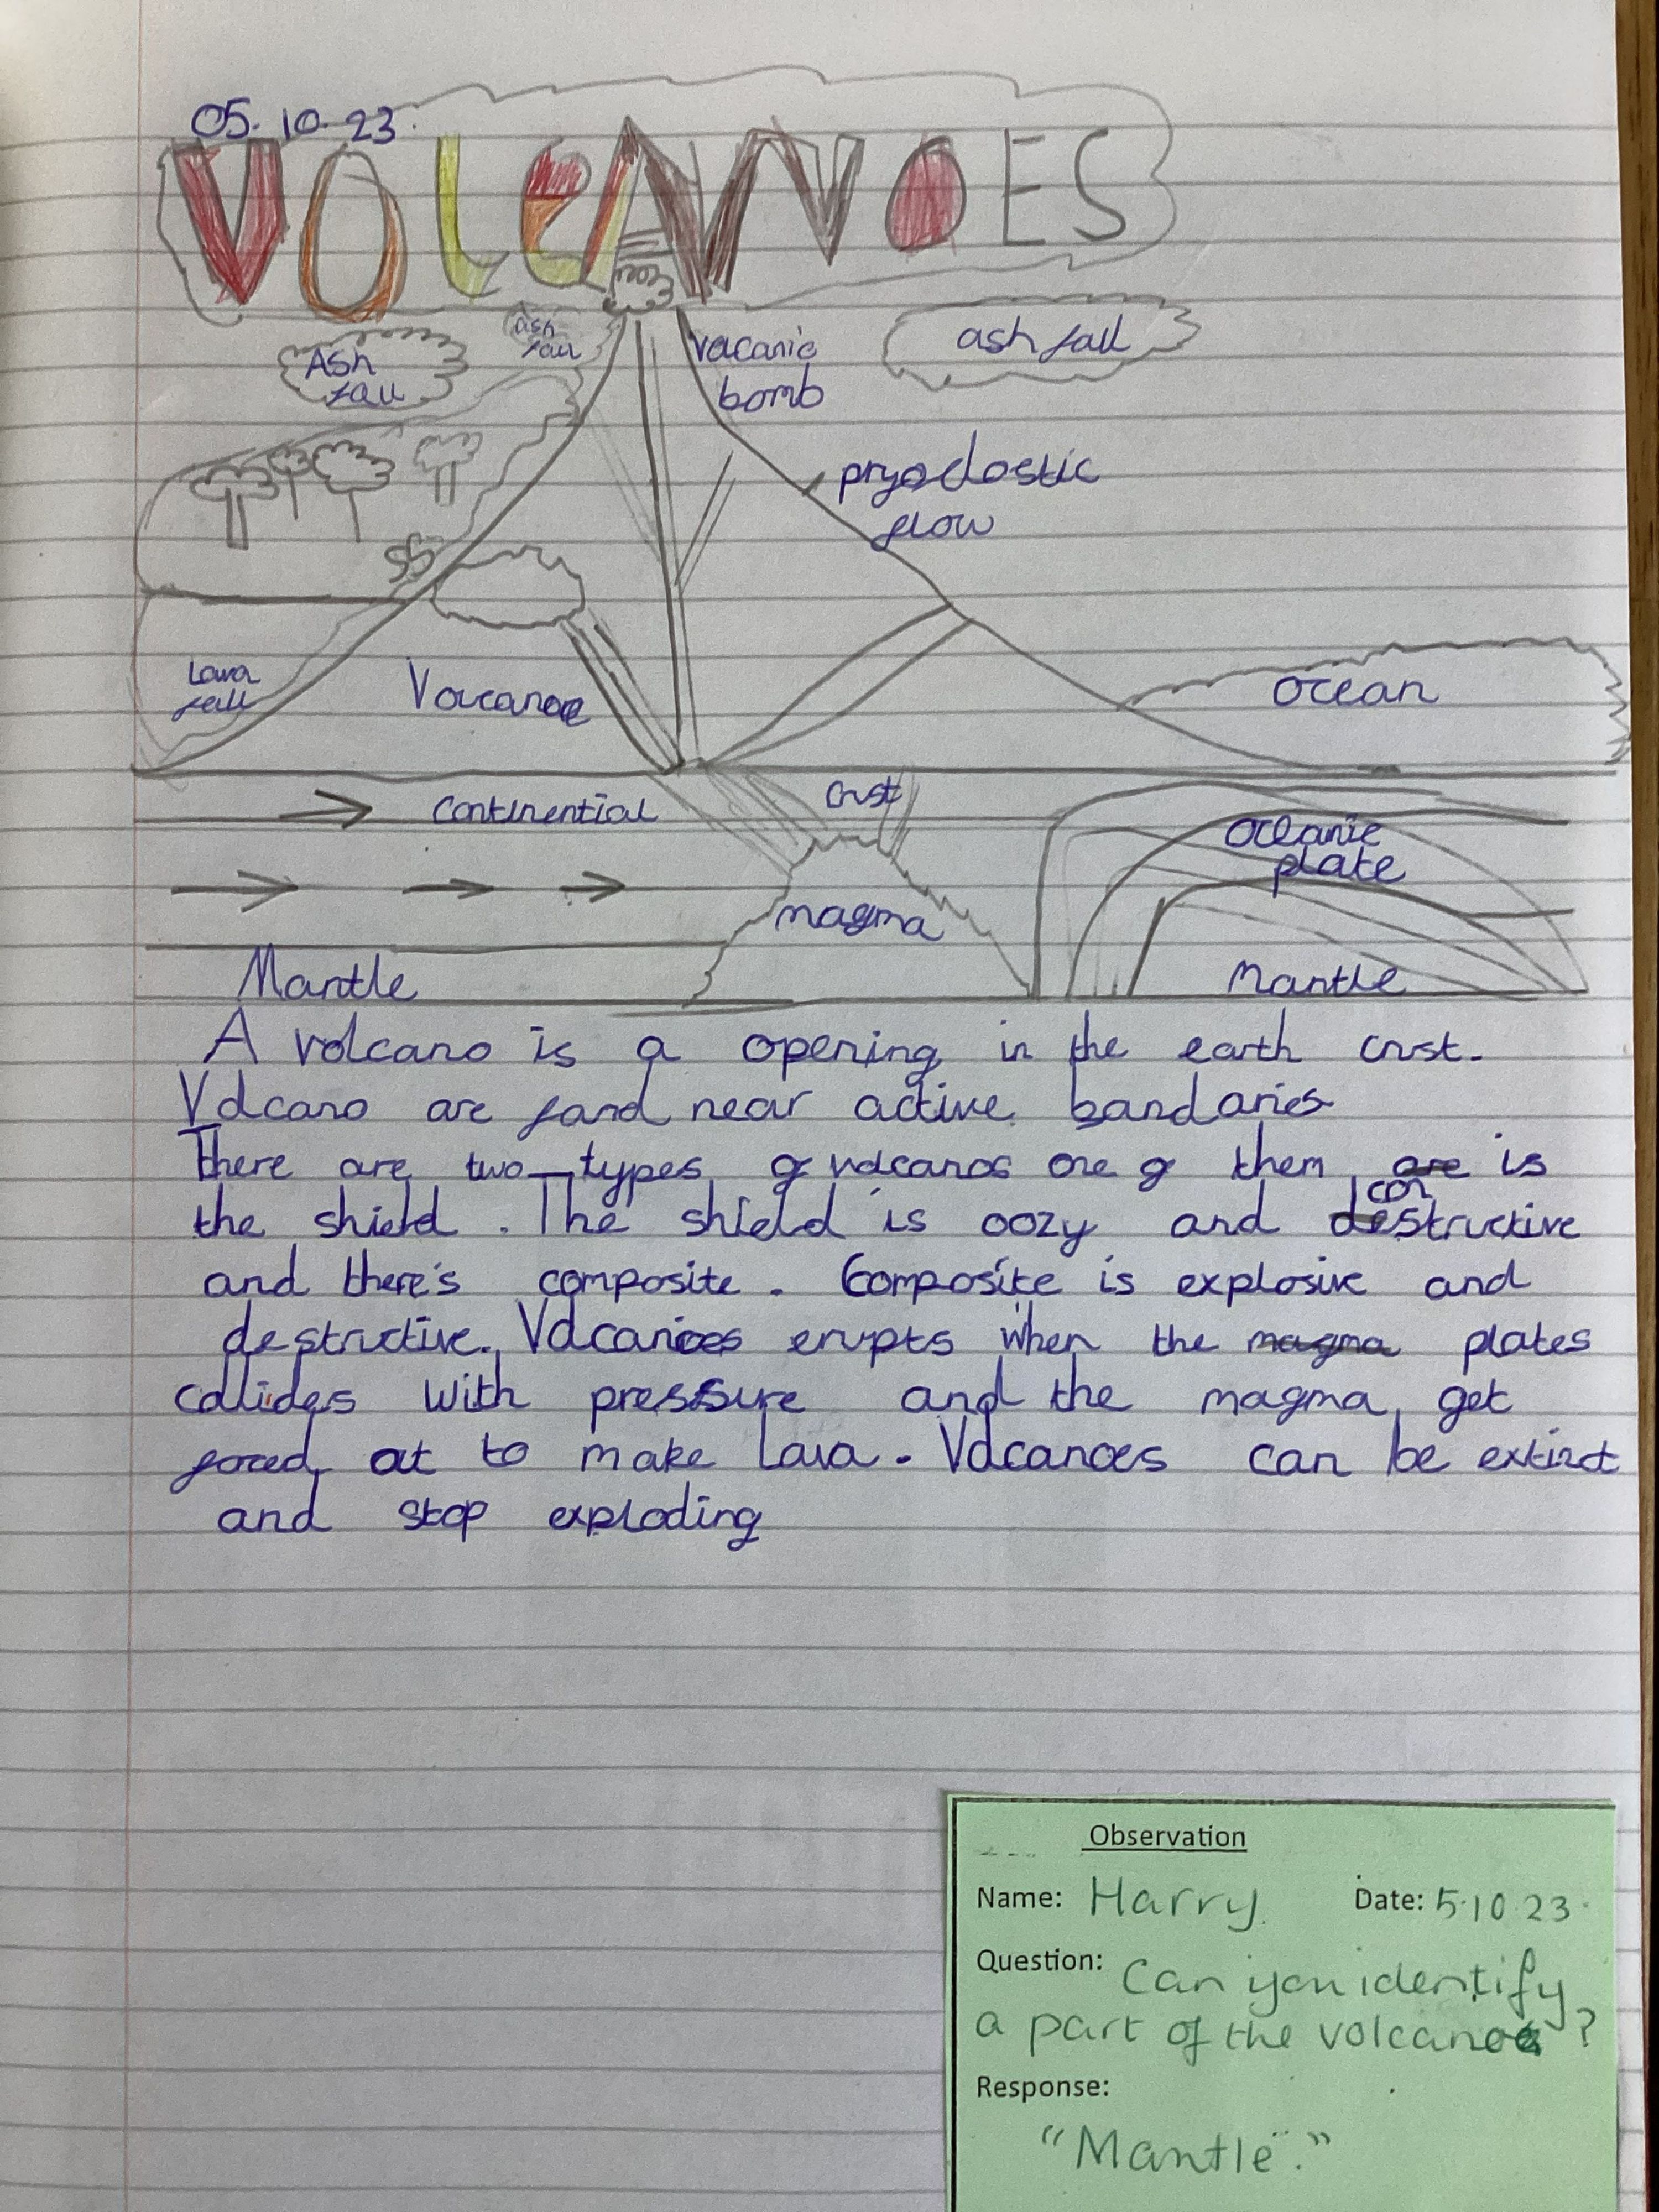 05.10.23.
VOLCANOES
Ash
fall
ash
fall
Vocanic
bomb
ash fall
pryoclastic
flow
Lava
fall
Volcanoe
ocean
Continential
crust
Oceanic
plate
magma
Mantle
Mantle
A volcano is a opening in the earth crust.
Volcano are fond near active bandaries
There are two types of volcanos one of them are is
the shield. The shield is oozy and con destructive
and there's composite. Composite is explosive and
destructive. Volcanoes erupts when the magma plates
collides with pressure and the magma get
forced out to make lava. Volcanoes can be extinct
and stop exploding
Observation
Name: Harry Date: 5.10.23.
Question: Can you identify
a part of the volcano?
Response:
"Mantle."